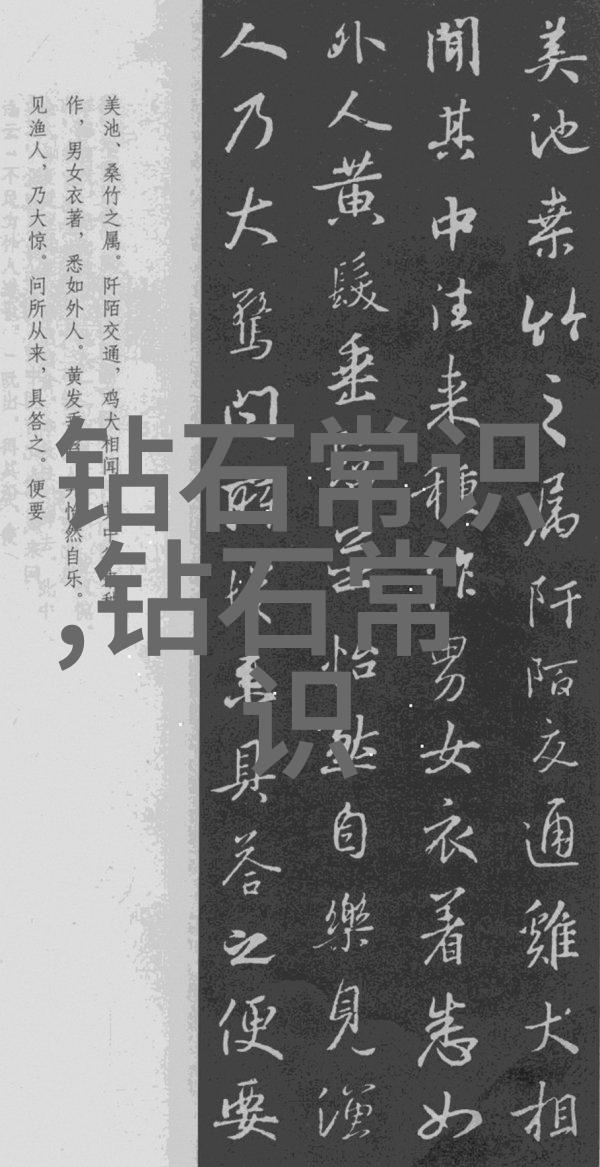 美池桑竹之属阡陌交通雞犬相
聞其中往来種作男女衣着悉如
外人黄髮垂髫並怡然自樂見漁
人乃大驚問所從来具答之便要
美池、桑竹之属。阡陌交通，鸡犬相闻。其中往来种
作，男女衣著，悉如外人。黄发垂髫，并怡然自乐。
见渔人，乃大惊。问所从来，具答之。便要
钻石常识
,钻石常
识